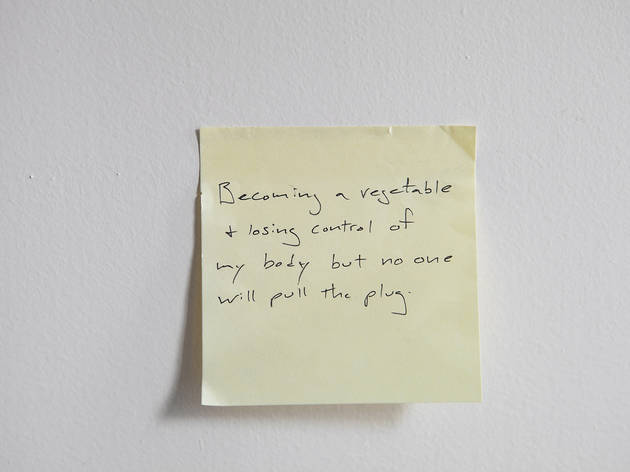 Becoming a vegetable
+ losing control of
my body but no one
will pull the plug.